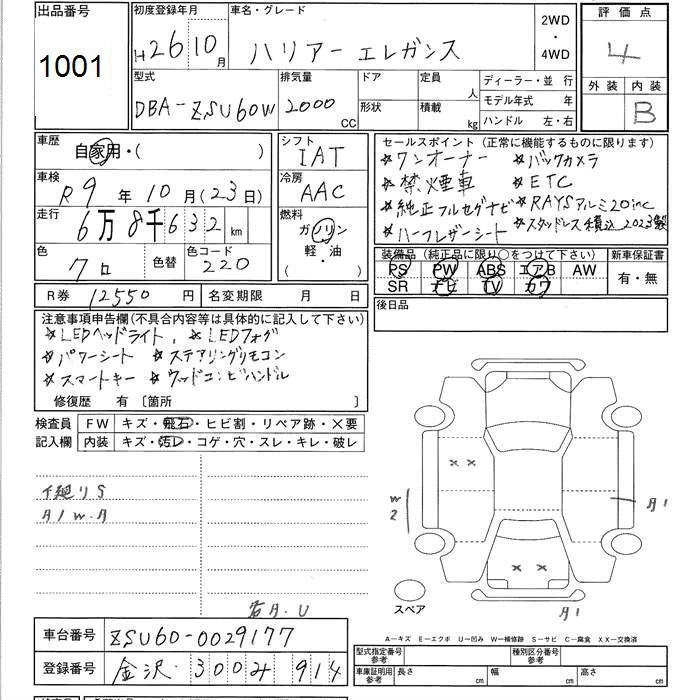 出品番号
1001
初度登録年月
H26 10月
車名・グレード
ハリアー エレガンス
2WD
・
4WD
評価点
4
外装 内装
B
型式
DBA-ZSU60W
排気量
2000 CC
ドア
形状
定員 人
積載 kg
ディーラー・並 行
モデル年式 年
ハンドル 左・右
車歴
自家用・( )
車検
R9年10月(23日)
走行
6万8千632km
色
クロ
色替
色コード
220
シフト
IAT
冷房
AAC
燃料
ガソリン
軽・油
( )
セールスポイント (正常に機能するものに限ります)
☆ワンオーナー ☆バックカメラ
☆禁煙車 ☆ETC
☆純正フルセグナビ ☆RAYSアルミ20inc
☆ハーフレザーシート ☆スタッドレス積込2023製
装備品 (純正品に限り○をつけて下さい)
PS PW ABS エアB AW
SR ナビ TV カワ
新車保証書
有・無
R券 12550円
名変期限 月 日
後日品
注意事項申告欄(不具合内容等は具体的に記入して下さい)
☆LEDヘッドライト、☆LEDフォグ
☆パワーシート ☆ステアリングリモコン
☆スマートキー ☆ウッドコンビハンドル
修復歴 有 〔箇所 〕
検査員
記入欄
FW キズ・飛石・ヒビ割・リペア跡・×要
内装 キズ・汚レ・コゲ・穴・スレ・キレ・破レ
下廻りS
A1 W.A
××
W
2
A1
××
A1
スペア
A.U
A−キズ E−エクボ U−凹み W−補修跡 S−サビ C−腐食 XX−交換済
車台番号
ZSU60-0029177
登録番号
金沢 300 み 914
型式指定番号
参考
種類区分番号
参考
車庫証明用
参考
長さ cm 幅 cm 高さ cm